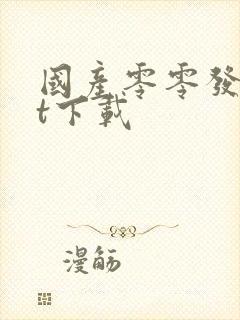 國產零零發
t下載
漫觞